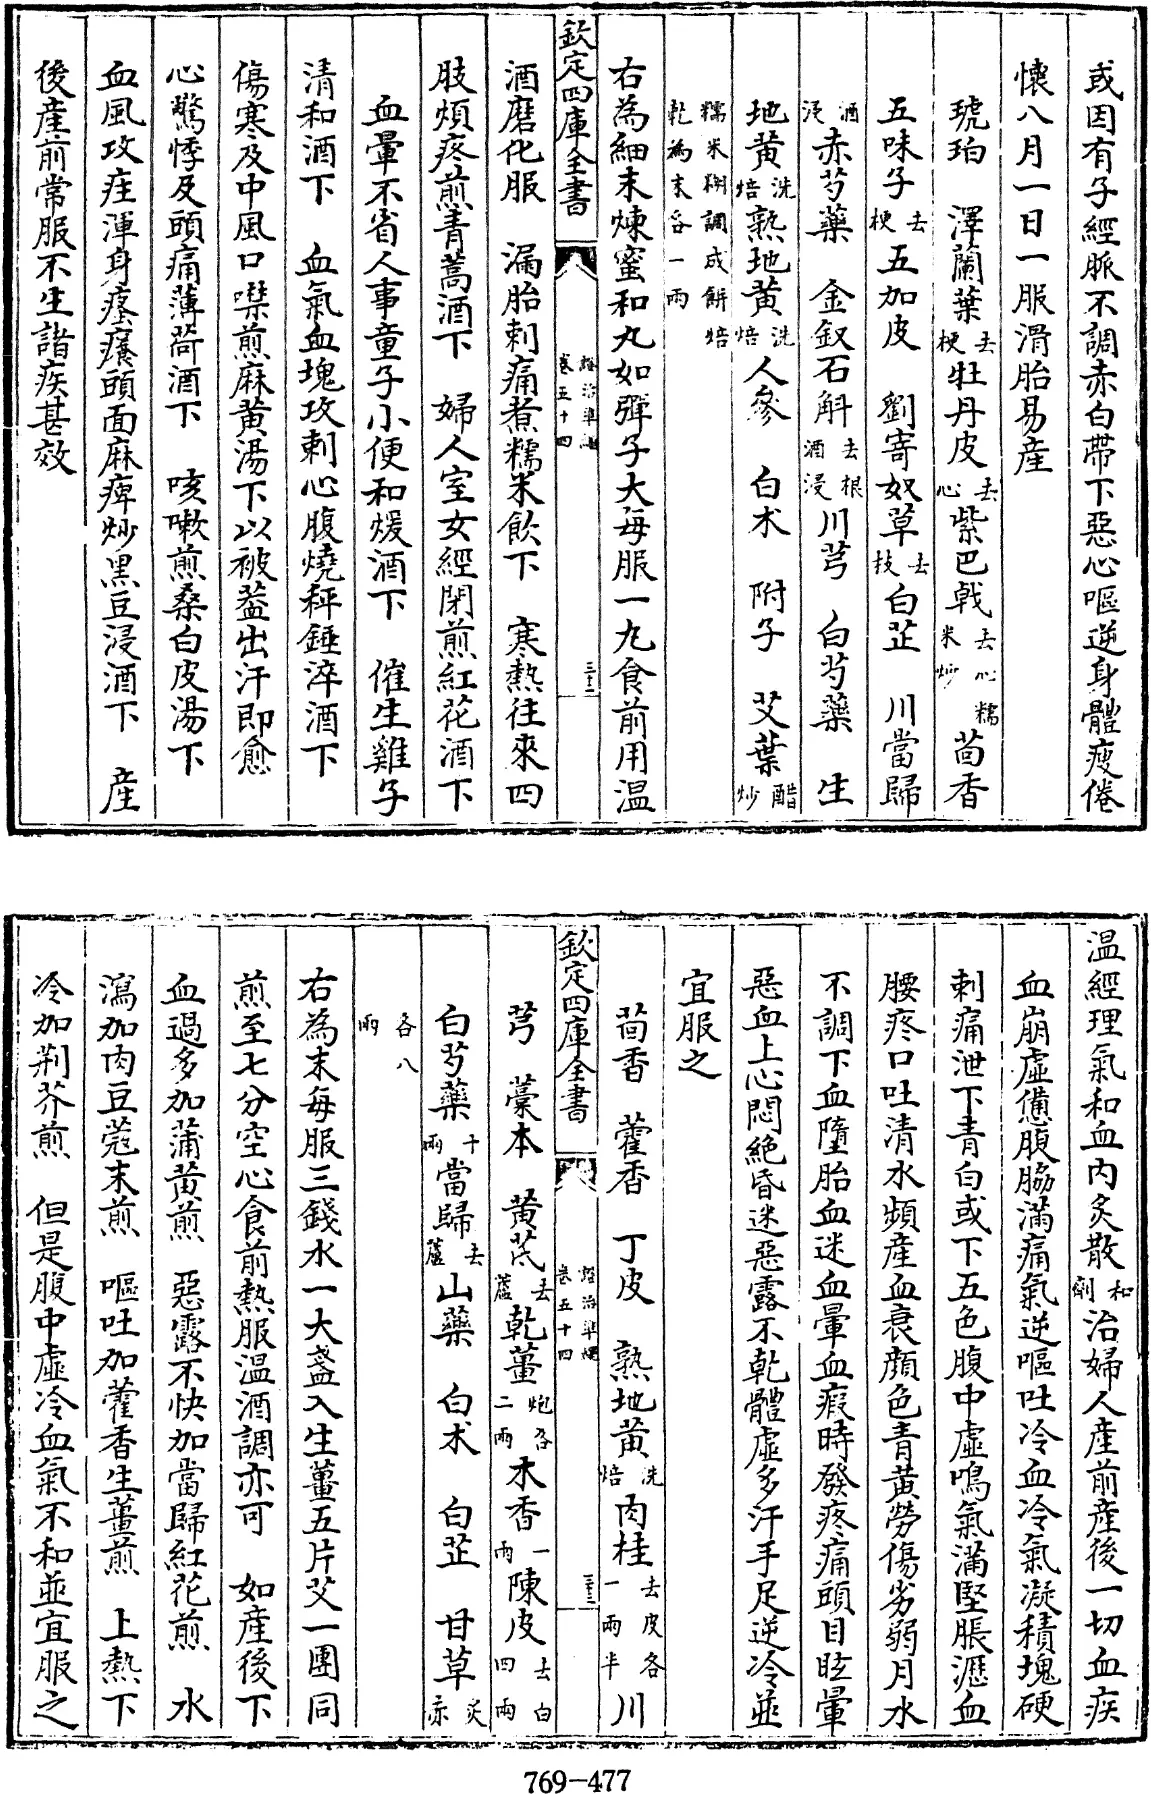 或因有子經脈不調赤白帶下惡心嘔逆身體瘦倦
懷八月一日一服滑胎易産
琥珀 澤蘭葉去梗牡丹皮去心紫巴戟去心糯米炒茴香
五味子去梗五加皮 劉寄奴草去枝白芷 川當歸
酒浸赤芍藥 金釵石斛去根酒浸川芎 白芍藥 生
地黄洗焙熟地黄洗焙人參 白术 附子 艾葉醋炒
糯米糊調成餅焙乾為末各一兩
右為細末煉蜜和丸如彈子大每服一丸食前用温
欽定四庫全書 證治準繩卷五十四 三十三
酒磨化服 漏胎刺痛煮糯米飲下 寒熱往來四
肢煩疼煎青蒿酒下 婦人室女經閉煎紅花酒下
血暈不省人事童子小便和煖酒下 催生雞子
清和酒下 血氣血塊攻刺心腹燒秤錘淬酒下
傷寒及中風口噤煎麻黄湯下以被葢出汗即愈
心驚悸及頭痛薄荷酒下 咳嗽煎桑白皮湯下
血風攻疰渾身瘙癢頭面麻痺炒黒豆浸酒下 産
後産前常服不生諸疾甚效
温經理氣和血内炙散和劑治婦人産前産後一切血疾
血崩虚憊腹脇滿痛氣逆嘔吐冷血冷氣凝積塊硬
刺痛泄下青白或下五色腹中虚鳴氣滿堅脹瀝血
腰疼口吐清水頻産血衰顔色青黄勞傷劣弱月水
不調下血墮胎血迷血暈血瘕時發疼痛頭目眩暈
惡血上心悶絶昏迷惡露不乾體虚多汗手足逆冷並
宜服之
茴香 藿香 丁皮 熟地黄洗焙肉桂去皮各一兩半川
欽定四庫全書 證治準繩卷五十四 三十三
芎 藁本 黄芪去蘆乾薑炮各二兩木香一兩陳皮去白四兩
白芍藥十兩當歸去蘆山藥 白术 白芷 甘草炙赤
各八兩
右為末每服三錢水一大盞入生薑五片艾一團同
煎至七分空心食前熱服温酒調亦可 如産後下
血過多加蒲黄煎 惡露不快加當歸紅花煎 水
瀉加肉豆蔻末煎 嘔吐加藿香生薑煎 上熱下
冷加荆芥煎 但是腹中虚冷血氣不和並宜服之
769-477